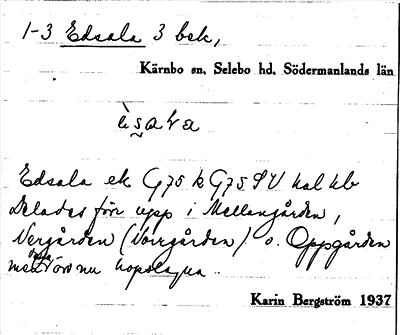 1-3 Edsala 3 bek,
Kärnbo sn, Selebo hd. Södermanlands län
èsa
Edsala ek G75 k G75 SV hal kb
Delades förr upp i Mellangården,
Nergården (Norrgården) o. Oppgården
men dessa äro nu hopslagna.
Karin Bergström 1937